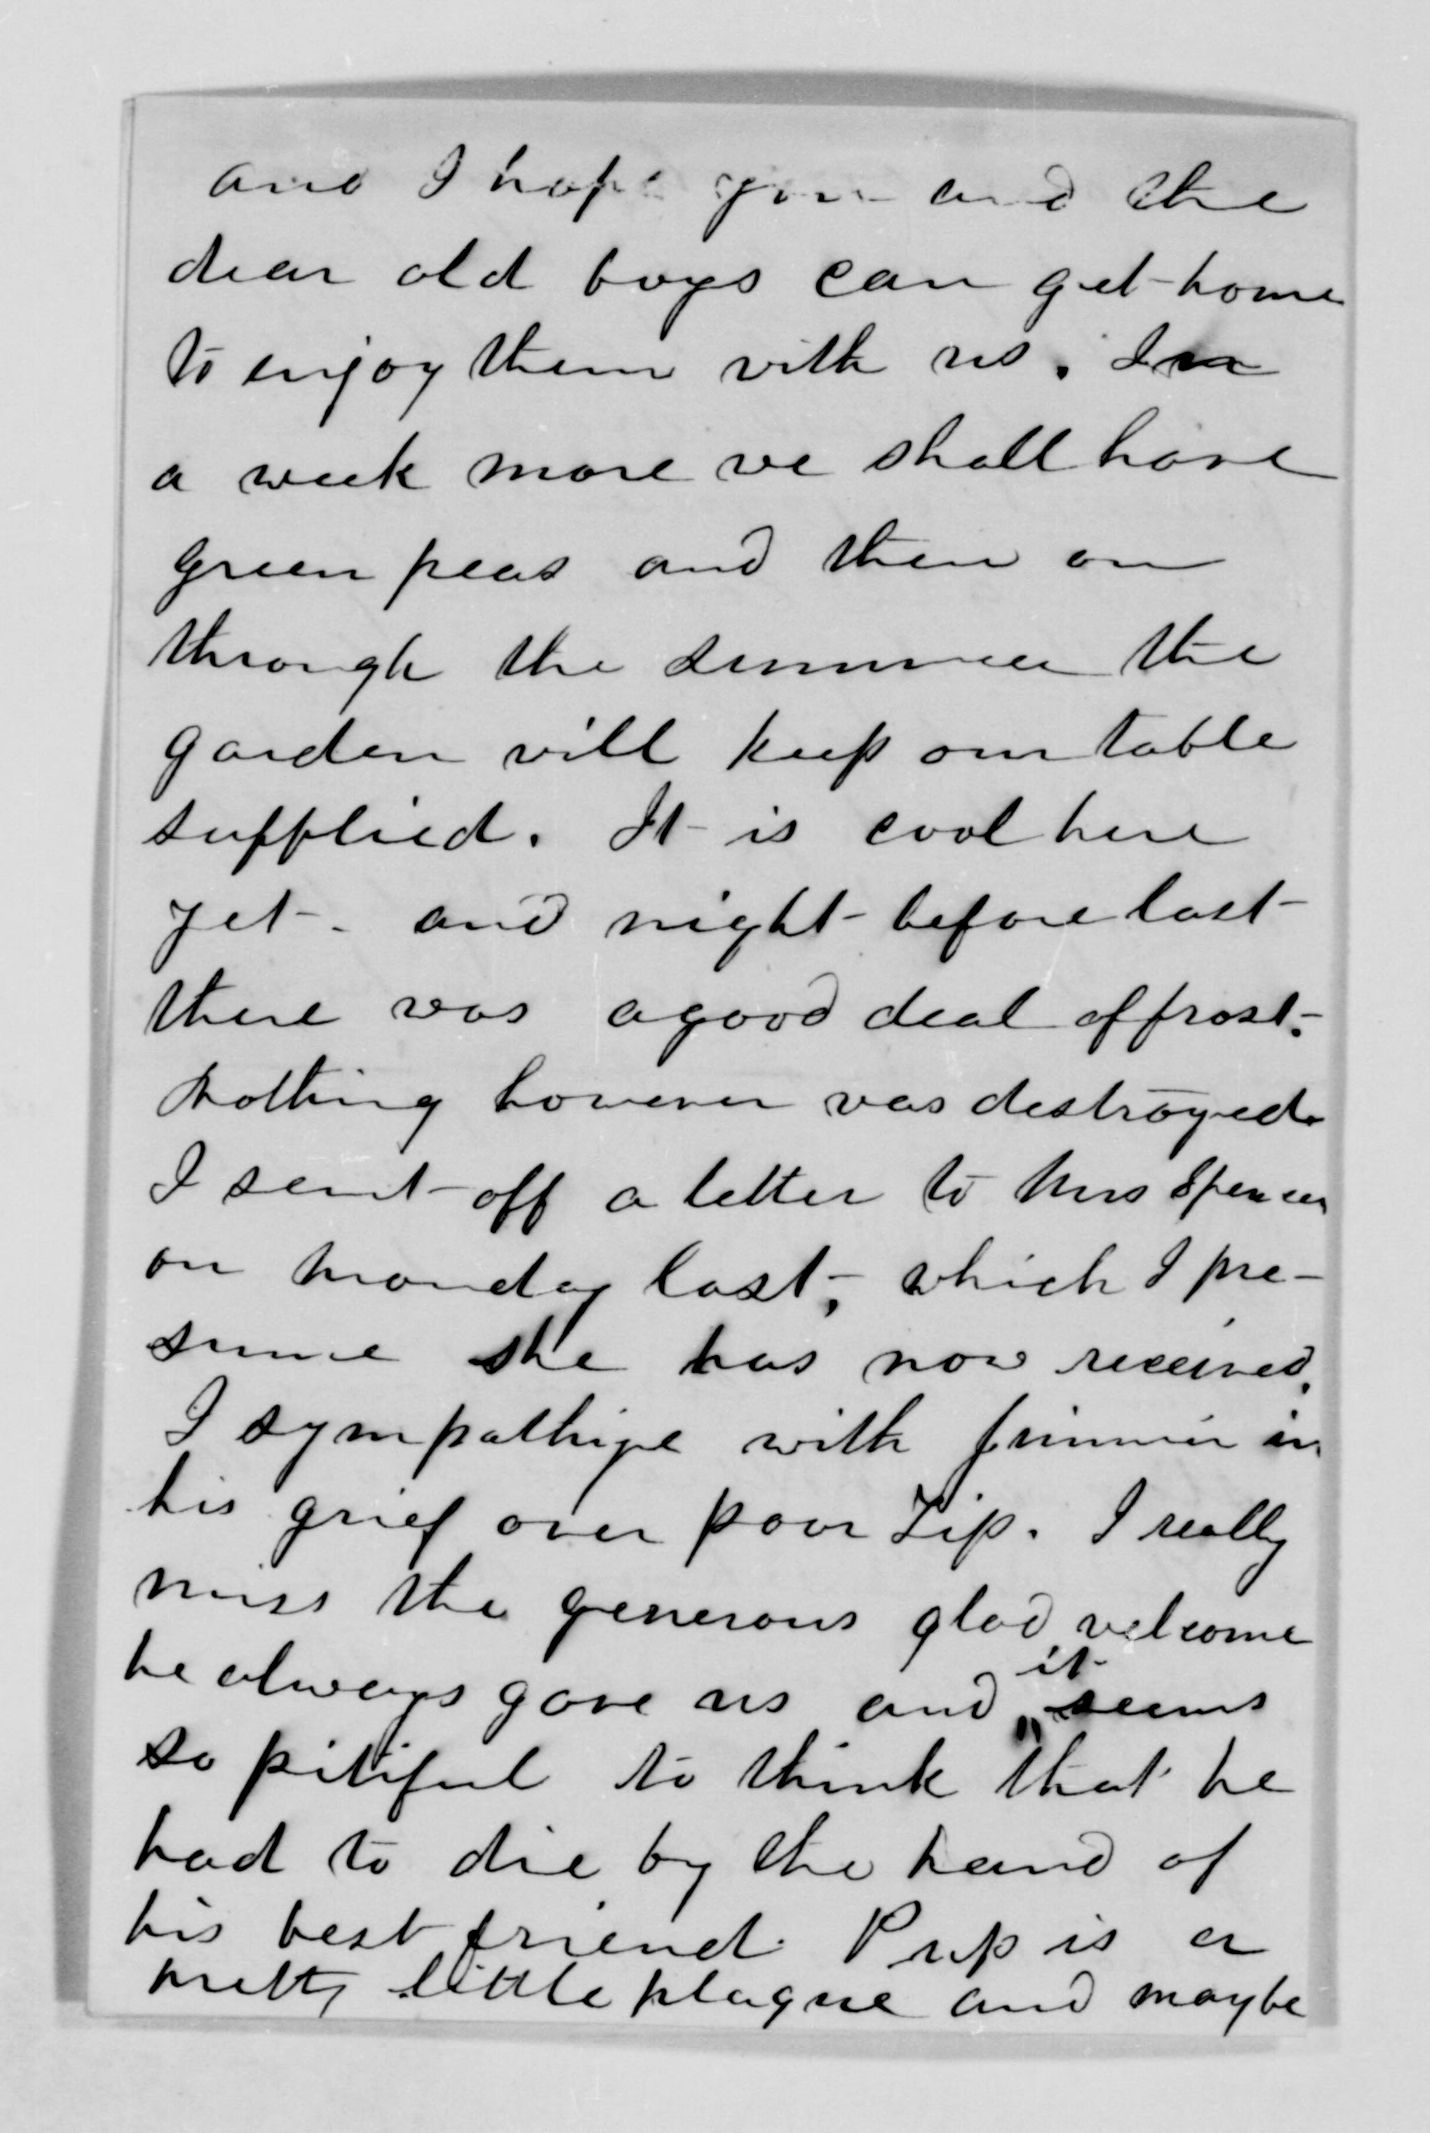 and I hope you and the
dear old boys can get home
to enjoy them with us. In
a week more we shall have
green peas and then on
through the summer the
garden will keep our table
supplied. It is cool here
yet - and night before last
there was a good deal of frost.
Nothing however was destroyed.
I sent off a letter to Mrs Spencer
on Monday last, which I pre-
sume she has now received.
I sympathize with Jimmie in
his grief over poor Zip. I really
miss the generous glad welcome
he always gave us and it seems
so pitiful to think that he
had to die by the hand of
his best friend. Pup is a
pretty little plague and maybe